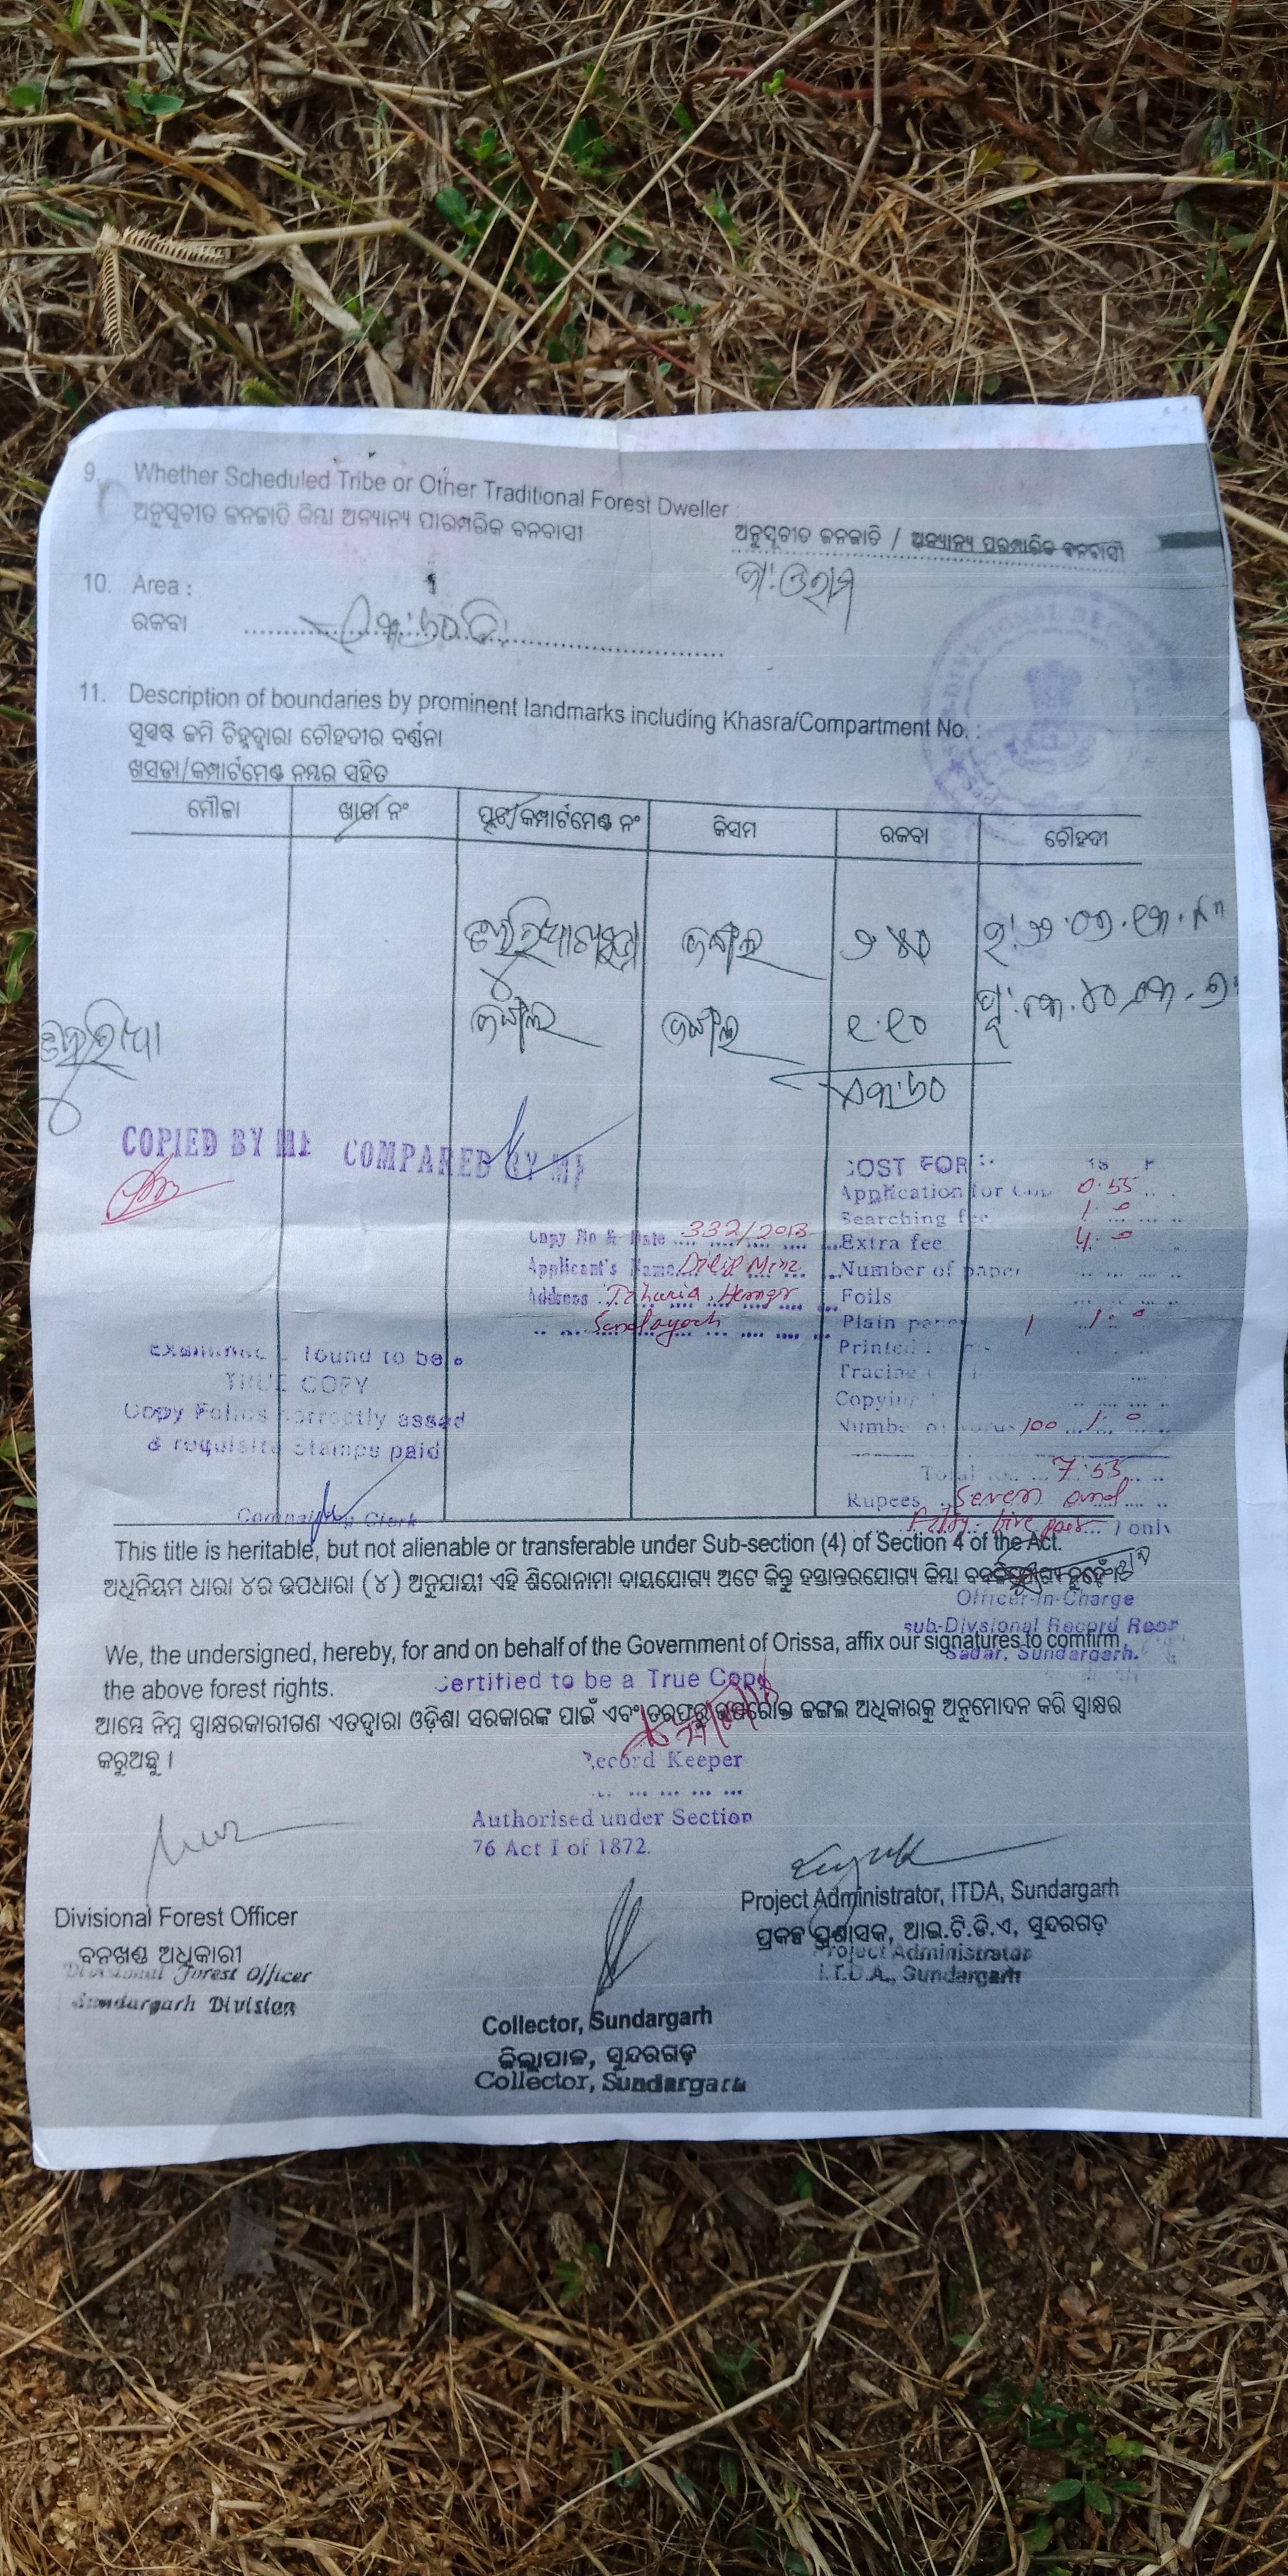 9. Whether Scheduled Tribe or Other Traditional Forest Dweller :
ଅନୁସୂଚୀତ ଜନଜାତି କିମ୍ବା ଅନ୍ୟାନ୍ୟ ପାରମ୍ପରିକ ବନବାସୀ
ଅନୁସୂଚୀତ ଜନଜାତି / ଅନ୍ୟାନ୍ୟ ପରମ୍ପାରିକ ବନବାସୀ
ଜା:ଓରାମ
10. Area :
ରକବା
11. Description of boundaries by prominent landmarks including Khasra/Compartment No. :
ସୁସ୍ପଷ୍ଟ ଜମି ଚିହ୍ନଦ୍ୱାରା ଚୌହଦୀର ବର୍ଣ୍ଣନା
ଖସଡ଼ା/କମ୍ପାର୍ଟମେଣ୍ଟ ନମ୍ବର ସହିତ
ମୌଜା ଖାତା ନଂ ପ୍ଲଟ/କମ୍ପାର୍ଟମେଣ୍ଟ ନଂ କିସମ ରକବା ଚୌହଦୀ
ଜଙ୍ଗଲ ୨.୪୦
ଜଙ୍ଗଲ ଜଙ୍ଗଲ ୧.୧୦
COPIED BY ME COMPARED BY ME
COST FOR :-
Application for 0.55
Searching fee 1.0
Copy No & Date 332/2013
Extra fee 4.0
Applicant's Name Dilip Minz
Number of paper
Address
Foils
Plain paper 1 1.0
Printed
Tracing
Copying
Number of 100 1.0
Examined found to be a
TRUE COPY
Copy Folios correctly assed
& requisite stamps paid
Total 7.55
Rupees Seven and
Fifty five paise ) only
Comparing Clerk
This title is heritable, but not alienable or transferable under Sub-section (4) of Section 4 of the Act.
ଅଧିନିୟମ ଧାରା ୪ର ଉପଧାରା (୪) ଅନୁଯାୟୀ ଏହି ଶିରୋନାମା ଦାୟଯୋଗ୍ୟ ଅଟେ କିନ୍ତୁ ହସ୍ତାନ୍ତରଯୋଗ୍ୟ କିମ୍ବା ନୁହେଁ ।
Officer-in-Charge
Sub-Divsional Record Room
Sadar, Sundargarh.
We, the undersigned, hereby, for and on behalf of the Government of Orissa, affix our signatures to comfirm
the above forest rights.
Certified to be a True Copy
ଆମ୍ଭେ ନିମ୍ନ ସ୍ୱାକ୍ଷରକାରୀଗଣ ଏତଦ୍ୱାରା ଓଡ଼ିଶା ସରକାରଙ୍କ ପାଇଁ ଏବଂ ତରଫରୁ ଉପରୋକ୍ତ ଜଙ୍ଗଲ ଅଧିକାରକୁ ଅନୁମୋଦନ କରି ସ୍ୱାକ୍ଷର
କରୁଅଛୁ ।
Record Keeper
Authorised under Section
76 Act I of 1872.
Divisional Forest Officer
ବନଖଣ୍ଡ ଅଧିକାରୀ
Divisional Forest Officer
Sundargarh Division
Project Administrator, ITDA, Sundargarh
ପ୍ରକଳ୍ପ ପ୍ରଶାସକ, ଆଇ.ଟି.ଡି.ଏ, ସୁନ୍ଦରଗଡ଼
Project Administrator
I.T.D.A., Sundargarh
Collector, Sundargarh
ଜିଲ୍ଲାପାଳ, ସୁନ୍ଦରଗଡ଼
Collector, Sundargarh